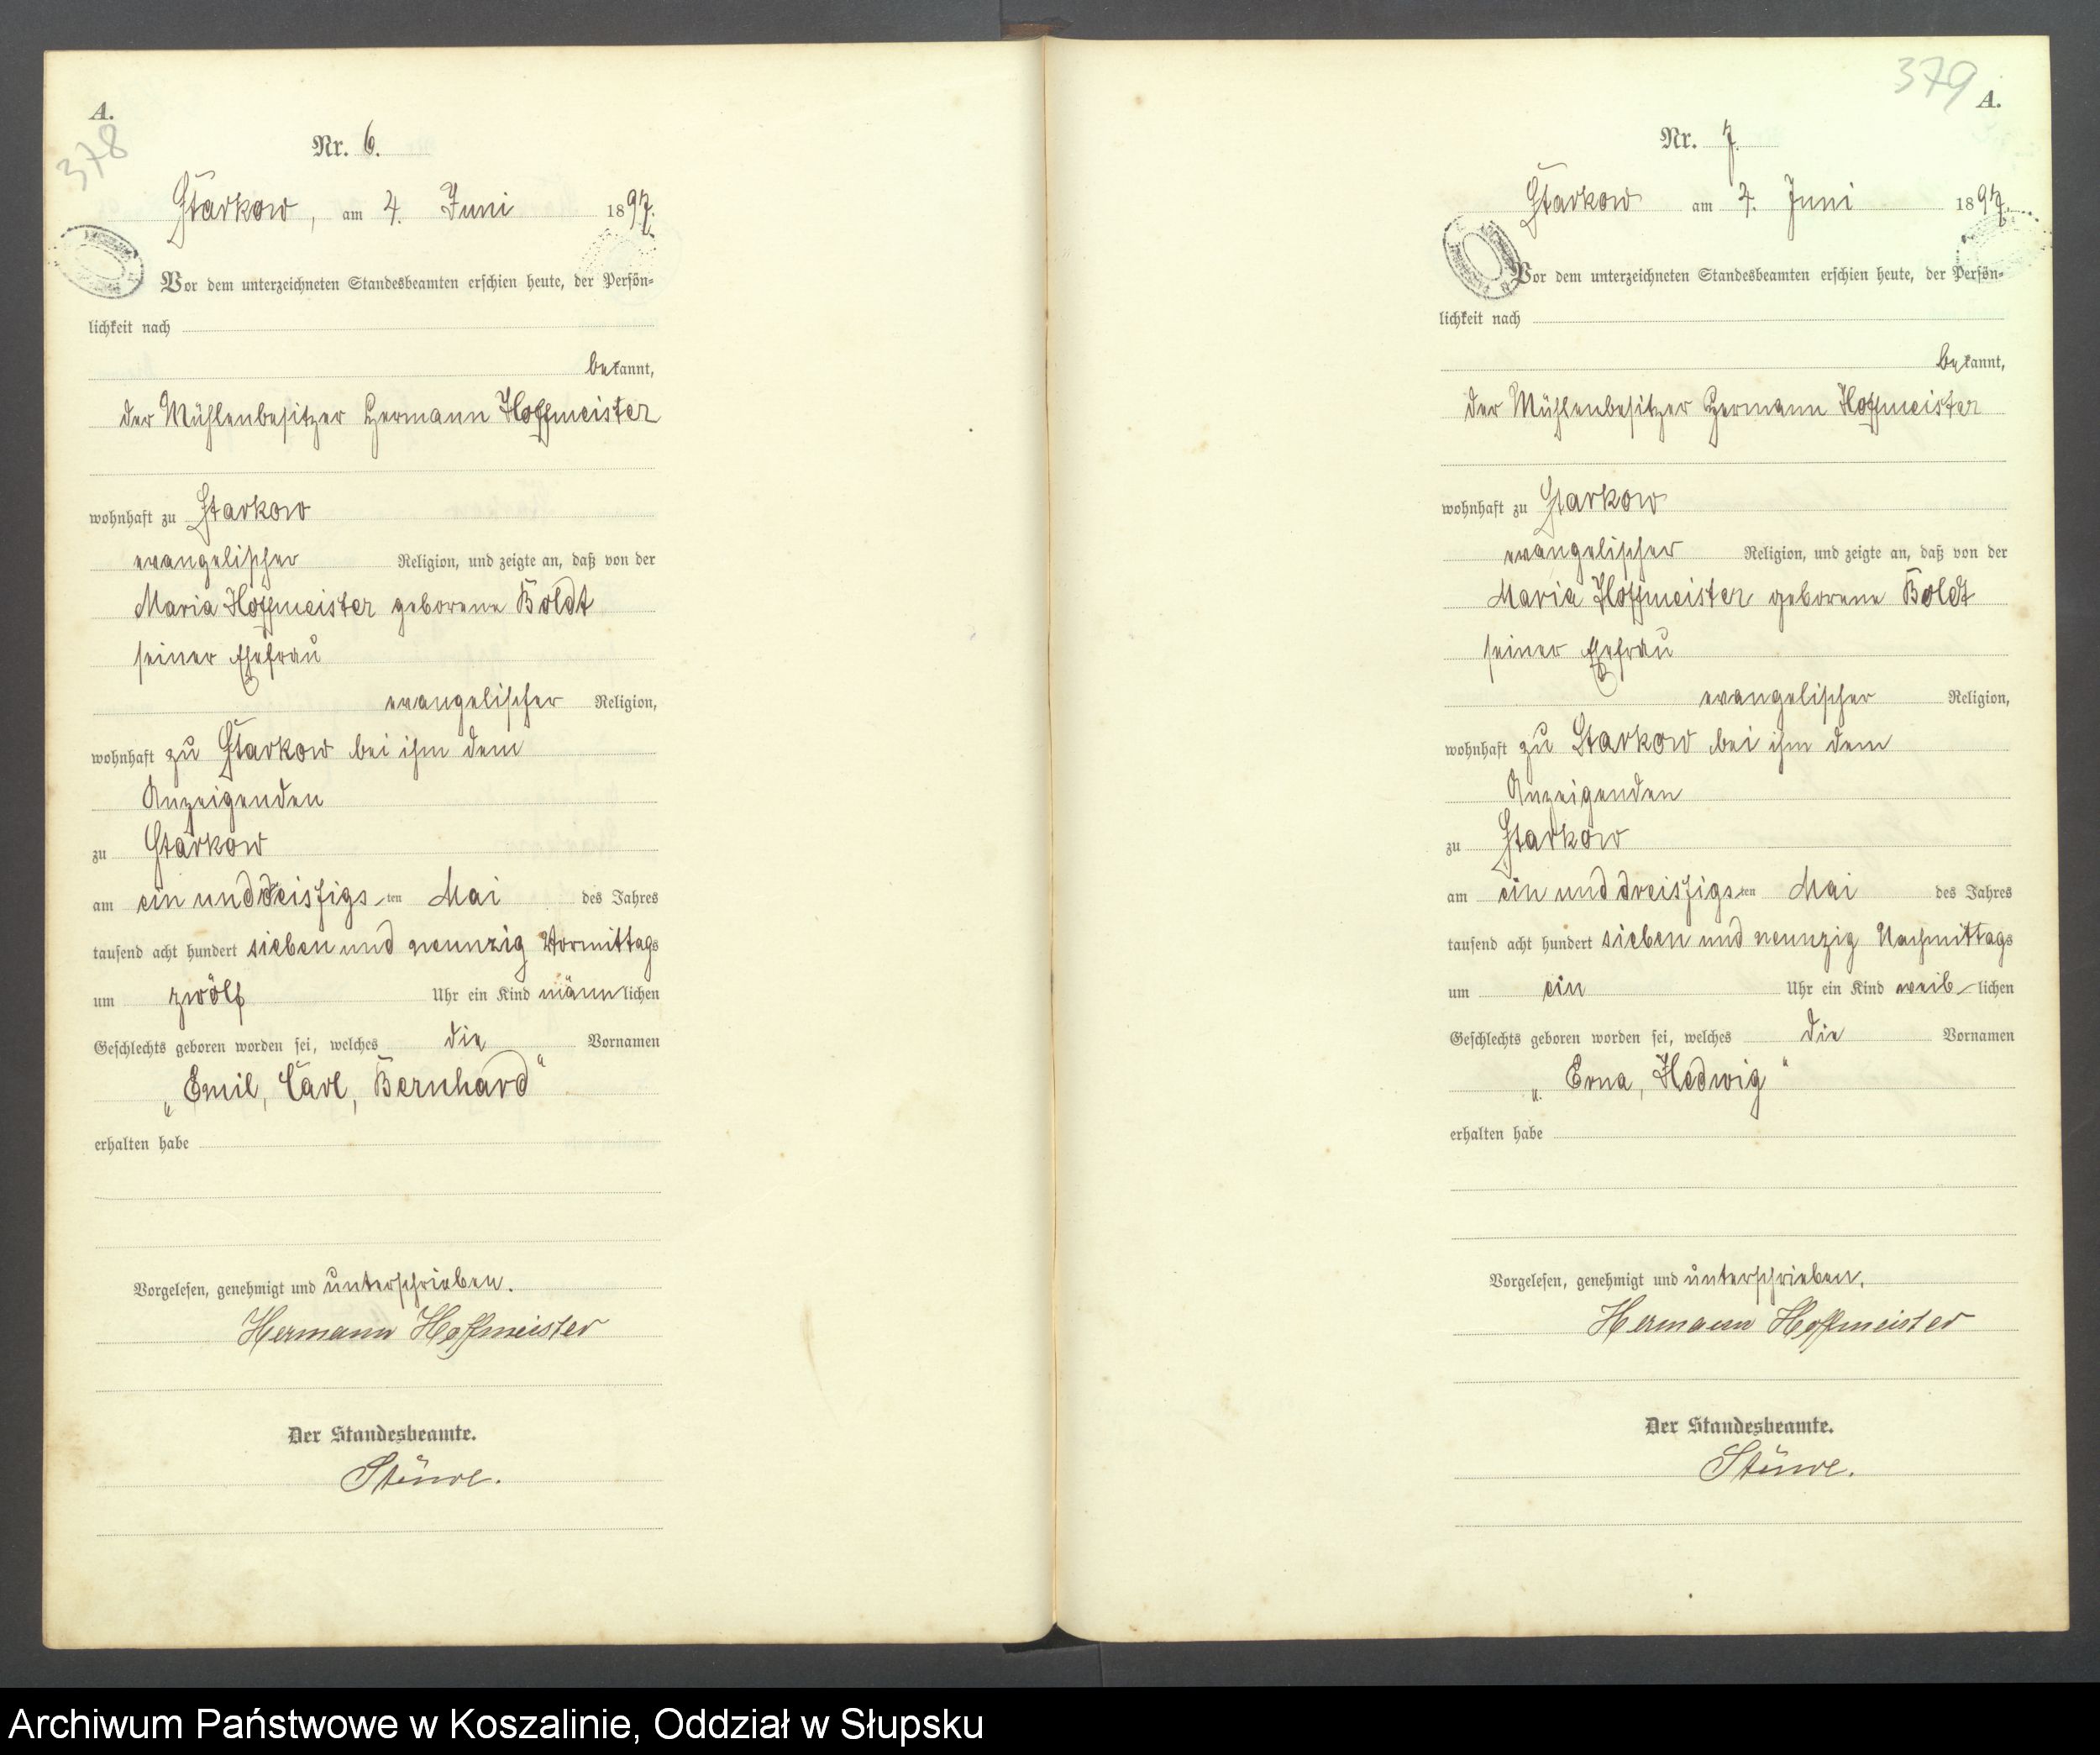 A.
378
Nr. 6.
Starkow, am 4. Juni 1897.
Vor dem unterzeichneten Standesbeamten erschien heute, der Persön-
lichkeit nach
bekannt,
der Mühlenbesitzer Hermann Hoffmeister
wohnhaft zu Starkow
evangelischer Religion, und zeigte an, daß von der
Maria Hoffmeister geborene Boldt
seiner Ehefrau
evangelischer Religion,
wohnhaft zu Starkow bei ihm dem
Anzeigenden
zu Starkow
am ein und dreiszigs ten Mai des Jahres
tausend acht hundert sieben und neunzig Vormittags
um zwölf Uhr ein Kind männlichen
Geschlechts geboren worden sei, welches die Vornamen
„Emil, Carl, Bernhard“
erhalten habe
Vorgelesen, genehmigt und unterschrieben.
Hermann Hoffmeister
Der Standesbeamte.
Stüwe.
379
A.
Nr. 7.
Starkow am 4. Juni 1897.
Vor dem unterzeichneten Standesbeamten erschien heute, der Persön-
lichkeit nach
bekannt,
der Mühlenbesitzer Hermann Hoffmeister
wohnhaft zu Starkow
evangelischer Religion, und zeigte an, daß von der
Maria Hoffmeister geborene Boldt
seiner Ehefrau
evangelischer Religion,
wohnhaft zu Starkow bei ihm dem
Anzeigenden
zu Starkow
am ein und dreiszigs ten Mai des Jahres
tausend acht hundert sieben und neunzig Nachmittags
um ein Uhr ein Kind weiblichen
Geschlechts geboren worden sei, welches die Vornamen
„Erna, Hedwig“
erhalten habe
Vorgelesen, genehmigt und unterschrieben.
Hermann Hoffmeister
Der Standesbeamte.
Stüwe.
Archiwum Państwowe w Koszalinie, Oddział w Słupsku